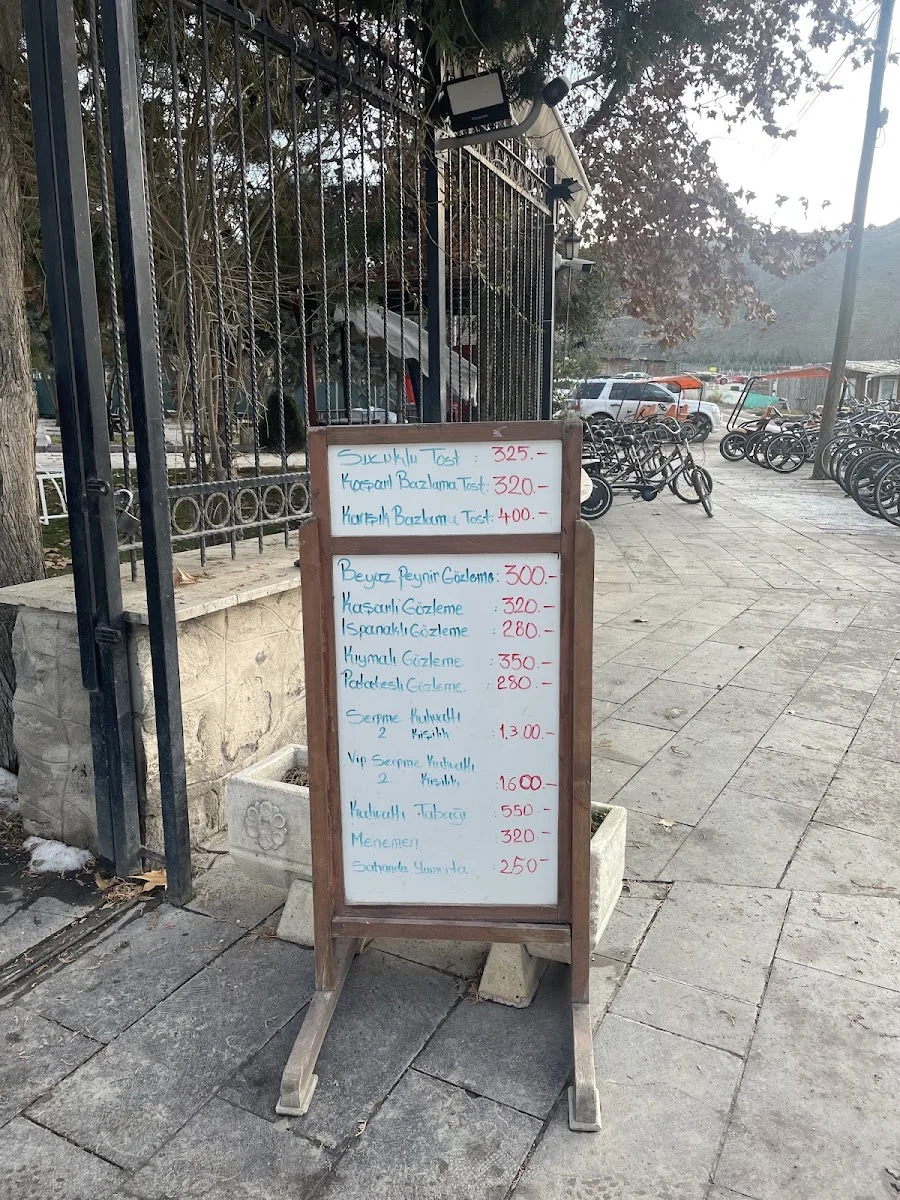 Sucuklu Tost : 325.-
Kaşarlı Bazlama Tost: 320.-
Karışık Bazlama Tost: 400.-
Beyaz Peynir Gözleme: 300.-
Kaşarlı Gözleme : 320.-
Ispanaklı Gözleme : 280.-
Kıymalı Gözleme : 350.-
Patatesli Gözleme : 280.-
Serpme Kahvaltı
2 Kişilik : 1.300.-
Vip Serpme Kahvaltı
2 Kişilik : 1.600.-
Kahvaltı Tabağı : 550-
Menemen : 320-
Sahanda Yumurta : 250-